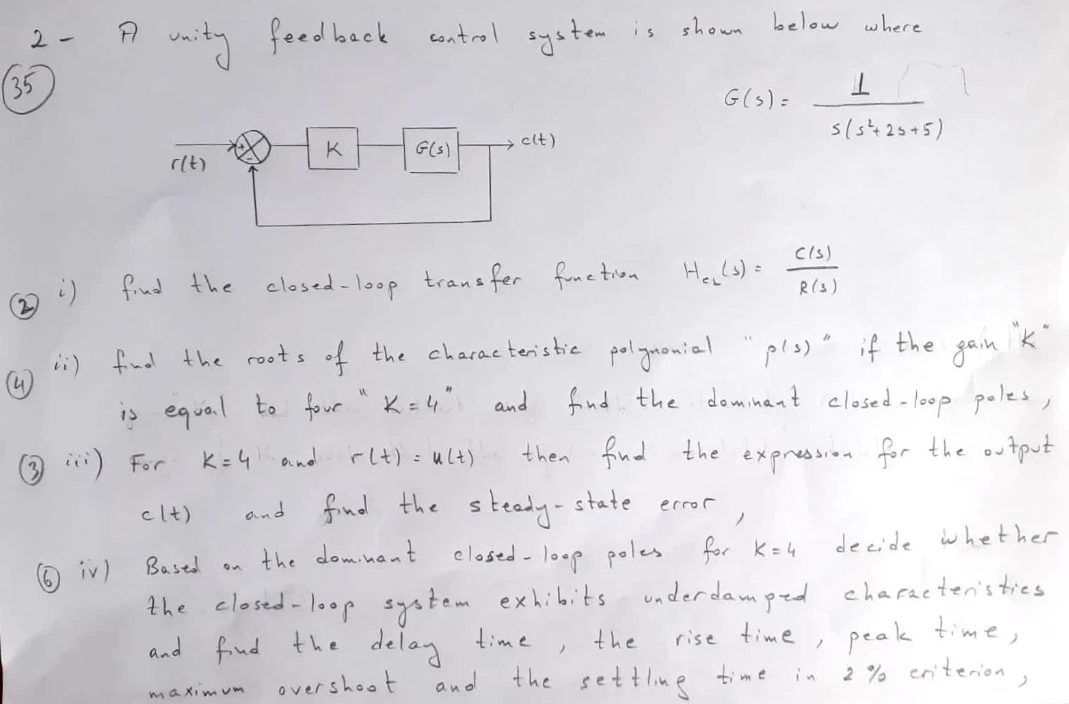 2 - A unity feedback control system is shown below where
(35)
G(s) = 1 / s(s²+2s+5)
r(t) + - K G(s) c(t)
(2) i) find the closed-loop transfer function H_CL(s) = C(s) / R(s)
(4) ii) find the roots of the characteristic polynomial "p(s)" if the gain "K"
is equal to four "K=4" and find the dominant closed-loop poles,
(3) iii) For K=4 and r(t) = u(t) then find the expression for the output
c(t) and find the steady-state error,
(6) iv) Based on the dominant closed-loop poles for K=4 decide whether
the closed-loop system exhibits underdamped characteristics
and find the delay time, the rise time, peak time,
maximum overshoot and the settling time in 2% criterion,